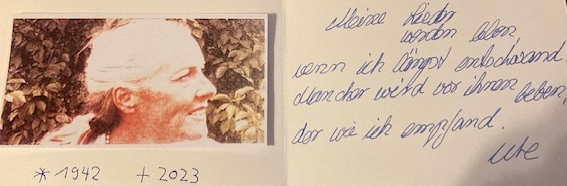 * 1942 + 2023
Meine Lieder
werden leben,
wenn ich längst entschwand.
Mancher wird vor ihnen beben,
der wie ich empfand.
Ute